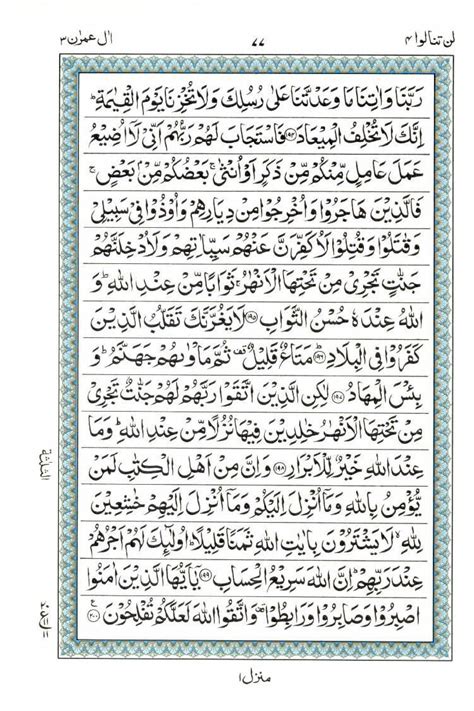 لن تنالوا ۴
۷۷
اٰل عمرٰن ۳
رَبَّنَا وَاٰتِنَا مَا وَعَدْتَّنَا عَلٰى رُسُلِكَ وَلَا تُخْزِنَا يَوْمَ الْقِيٰمَةِ ؕ
اِنَّكَ لَا تُخْلِفُ الْمِيْعَادَ ﴿۱۹۴﴾ فَاسْتَجَابَ لَهُمْ رَبُّهُمْ اَنِّىْ لَاۤ اُضِيْعُ
عَمَلَ عَامِلٍ مِّنْكُمْ مِّنْ ذَكَرٍ اَوْ اُنْثٰى ۚ بَعْضُكُمْ مِّنْۢ بَعْضٍ ۚ
فَالَّذِيْنَ هَاجَرُوْا وَاُخْرِجُوْا مِنْ دِيَارِهِمْ وَاُوْذُوْا فِىْ سَبِيْلِىْ
وَقٰتَلُوْا وَقُتِلُوْا لَاُكَفِّرَنَّ عَنْهُمْ سَيِّاٰتِهِمْ وَلَاُدْخِلَنَّهُمْ
جَنّٰتٍ تَجْرِىْ مِنْ تَحْتِهَا الْاَنْهٰرُ ۚ ثَوَابًا مِّنْ عِنْدِ اللّٰهِ ؕ وَ
اللّٰهُ عِنْدَهٗ حُسْنُ الثَّوَابِ ﴿۱۹۵﴾ لَا يَغُرَّنَّكَ تَقَلُّبُ الَّذِيْنَ
كَفَرُوْا فِى الْبِلَادِ ﴿۱۹۶﴾ مَتَاعٌ قَلِيْلٌ ثُمَّ مَاْوٰىهُمْ جَهَنَّمُ ؕ وَ
بِئْسَ الْمِهَادُ ﴿۱۹۷﴾ لٰكِنِ الَّذِيْنَ اتَّقَوْا رَبَّهُمْ لَهُمْ جَنّٰتٌ تَجْرِىْ
مِنْ تَحْتِهَا الْاَنْهٰرُ خٰلِدِيْنَ فِيْهَا نُزُلًا مِّنْ عِنْدِ اللّٰهِ ؕ وَمَا
عِنْدَ اللّٰهِ خَيْرٌ لِّلْاَبْرَارِ ﴿۱۹۸﴾ وَاِنَّ مِنْ اَهْلِ الْكِتٰبِ لَمَنْ
يُّؤْمِنُ بِاللّٰهِ وَمَاۤ اُنْزِلَ اِلَيْكُمْ وَمَاۤ اُنْزِلَ اِلَيْهِمْ خٰشِعِيْنَ
لِلّٰهِ ۙ لَا يَشْتَرُوْنَ بِاٰيٰتِ اللّٰهِ ثَمَنًا قَلِيْلًا ؕ اُولٰٓئِكَ لَهُمْ اَجْرُهُمْ
عِنْدَ رَبِّهِمْ ؕ اِنَّ اللّٰهَ سَرِيْعُ الْحِسَابِ ﴿۱۹۹﴾ يٰۤاَيُّهَا الَّذِيْنَ اٰمَنُوا
اصْبِرُوْا وَصَابِرُوْا وَرَابِطُوْا ۟ وَاتَّقُوا اللّٰهَ لَعَلَّكُمْ تُفْلِحُوْنَ ﴿۲۰۰﴾
الثلثة
منزل ۱